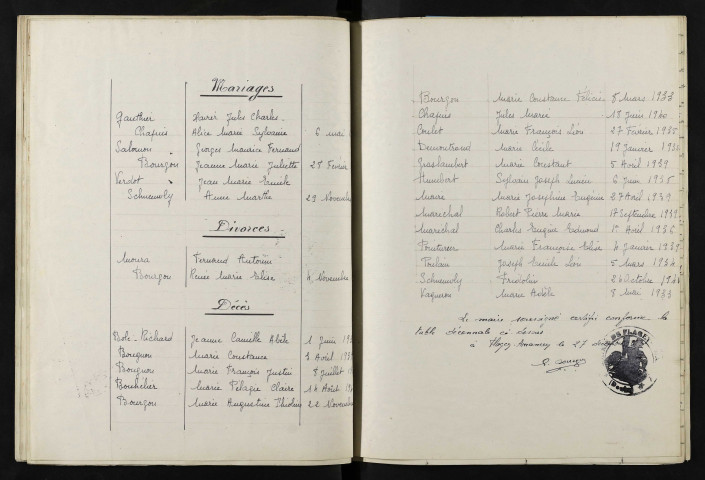 Mariages
Gauthier Xavier Jules Charles
Chapuis Alice Marie Sylvanie 6 mai
Salomon Georges Maurice Fernand
Bourgon Jeanne Marie Juliette 28 Février
Verdot Jean Marie Emile
Schmeroly Anne Marthe 29 Novembre
Divorces
Moura Fernand Antonin
Bourgon Renée Marie Elise 4 Novembre
Décès
Bole-Richard Jeanne Camille 1 Juin
Bourgon Marie Constance 3 Avril
Bourgon Marie François Justin 8 Juillet
Bouhélier Marie Pélagie Claire 14 Août
Bourgon Marie Augustine 22 Novembre
Bourgon Marie Constance Félicie 8 Mars 1933
Chapuis Jules Marie 18 Juin 1940
Marie François Léon 27 Février 1935
Marie Cécile 19 Janvier
Graslambert Marie Constant 5 Avril 1939
Humbert Sylvain Joseph Lucien 6 Juin 1935
Moura Marie Joséphine Eugénie 27 Avril 1939
Marechal Robert Pierre Marie 17 Septembre
Marechal Charles Eugène Edmond 1er Avril 1936
Marie Françoise Elise 4 Janvier
Poulain Joseph Emile Léon 5 Mars
Fridolin 26 Octobre
Vaqueron Marie Adèle 8 Mai 1933
Le maire soussigné certifie conforme la
table décennale ci-dessus
à le 27